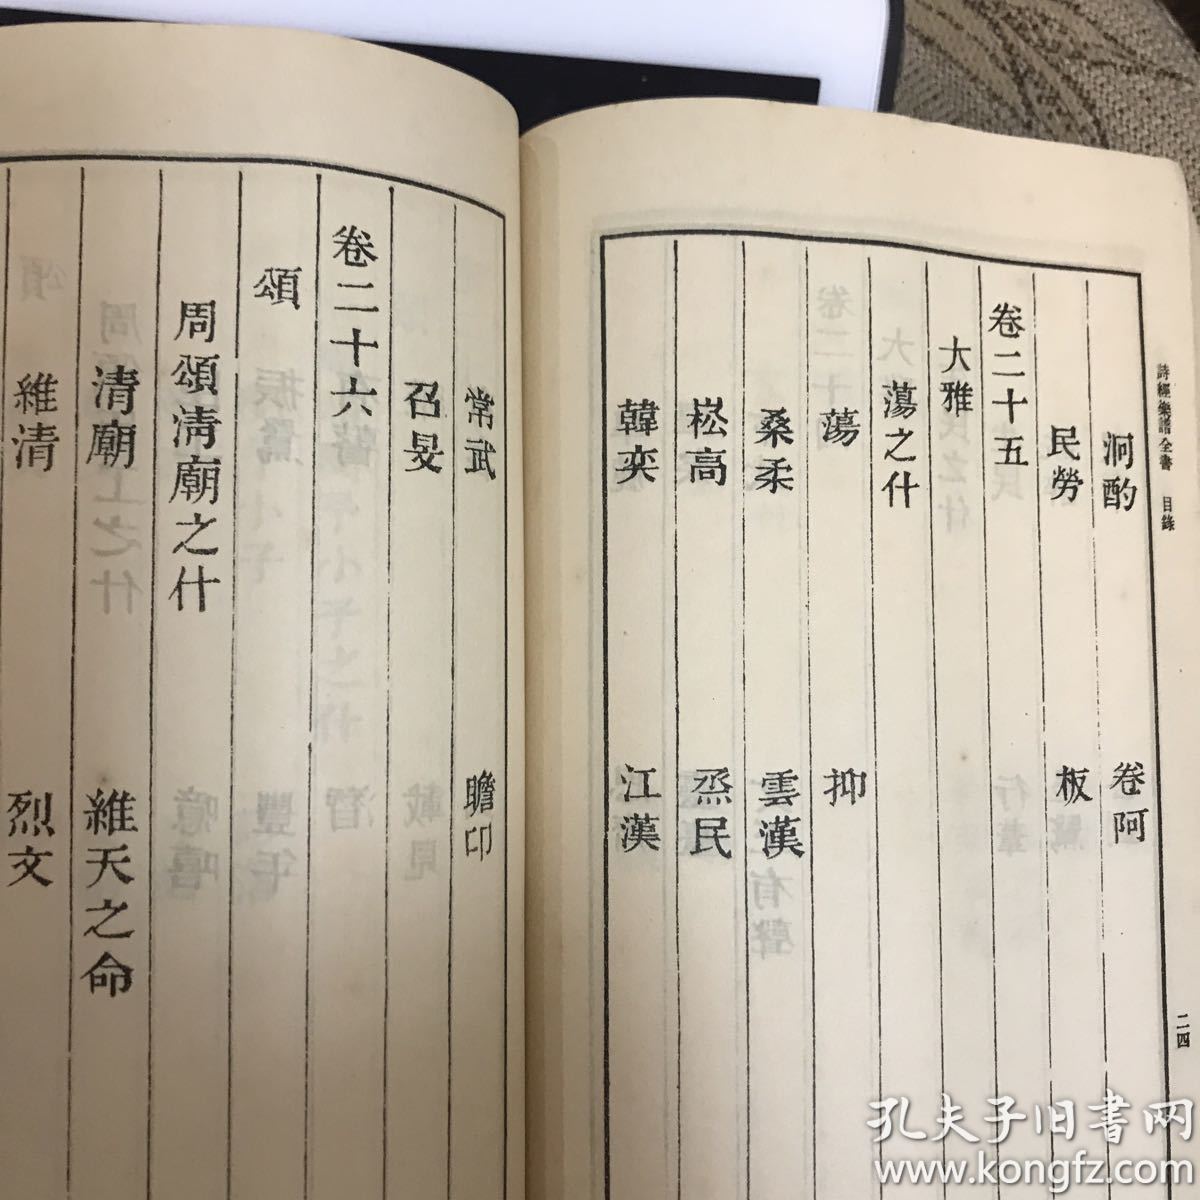 詩經樂譜全書 目錄
二四
泂酌 卷阿
民勞 板
卷二十五
大雅
蕩之什
蕩 抑
桑柔 雲漢
崧高 烝民
韓奕 江漢
常武 瞻卬
召旻
卷二十六
頌
周頌清廟之什
清廟 維天之命
維清 烈文
孔夫子旧书网
www.kongfz.com